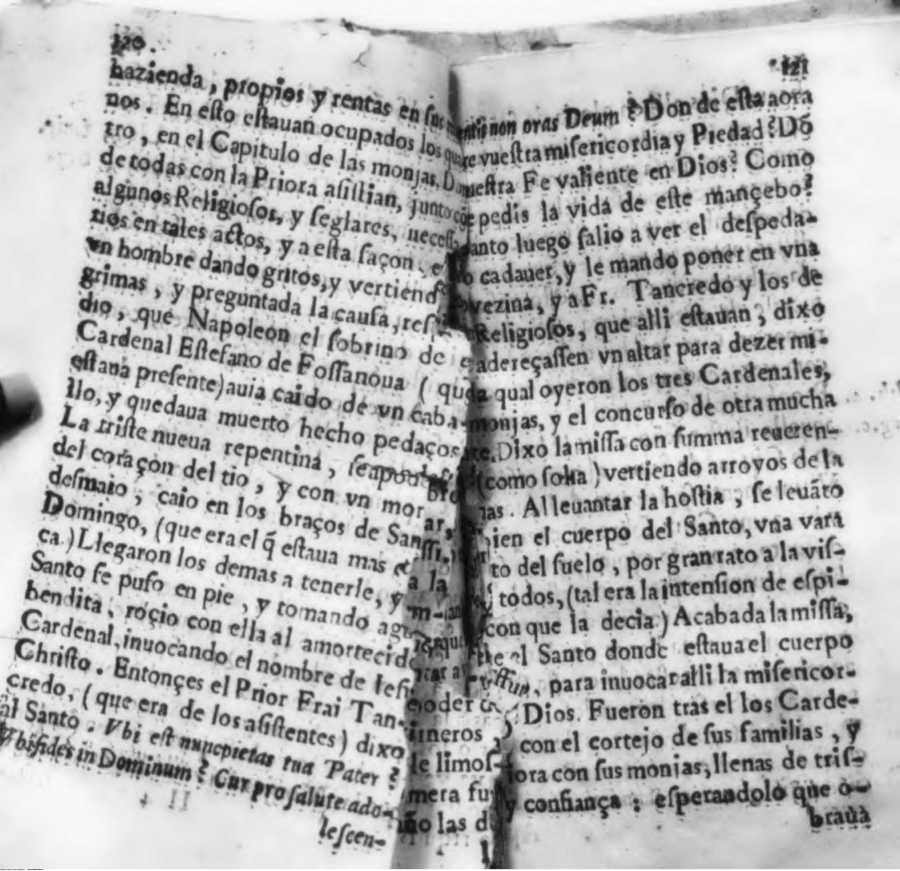 120.
hazienda, propios y rentas en sus
nos. En esto estauan ocupados los
tro, en el Capitulo de las monjas.
de todas con la Priora asistian, junto
algunos Religiosos, y seglares,
rios en tales actos, y a esta saçon,
vn hombre dando gritos, y
grimas, y preguntada la causa,
dio, que Napoleon el sobrino de
Cardenal Estefano de Fossanoua (
estaua presente) auia caido de vn caba-
llo, y quedaua muerto hecho pedaços
La triste nueua repentina,
del coraçon del tio, y con vn
desmaio, caio en los braços de
Domingo, (que era el q̃ estaua mas
ca.) Llegaron los demas a tenerle, y
Santo se puso en pie, y tomando
bendita, rocio con ella al
Cardenal, inuocando el nombre de
Christo. Entonçes el Prior Frai Tan-
credo, (que era de los asistentes) dixo
al Santo. Vbi est nunc pietas tua Pater?
Vbi fides in Dominum? Cur pro salute ado-
lescen-
121
non oras Deum? Donde esta aora
vuestra misericordia y Piedad? Dõ
Fe valiente en Dios? Como
pedis la vida de este mançebo?
luego salio a ver el despeda-
cadauer, y le mando poner en vna
y a Fr. Tancredo y los de
Religiosos, que alli estauan, dixo
adereçassen vn altar para dezir mi-
qual oyeron los tres Cardenales,
monjas, y el concurso de otra mucha
Dixo la missa con summa reueren-
(como solia) vertiendo arroyos de la
Al leuantar la hostia, se leuãto
el cuerpo del Santo, vna vara
del suelo, por gran rato a la vis-
todos, (tal era la intension de espi-
con que la decia.) Acabada la missa,
el Santo donde estaua el cuerpo
para inuocar alli la misericor-
Dios. Fueron tras el los Carde-
con el cortejo de sus familias, y
con sus monjas, llenas de tris-
y confiança: esperandolo que o-
braua